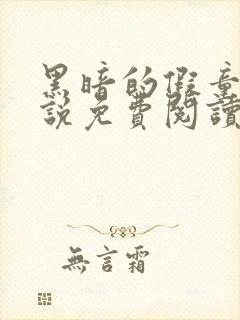 黑暗的假童
說免費閱讀
無言霜